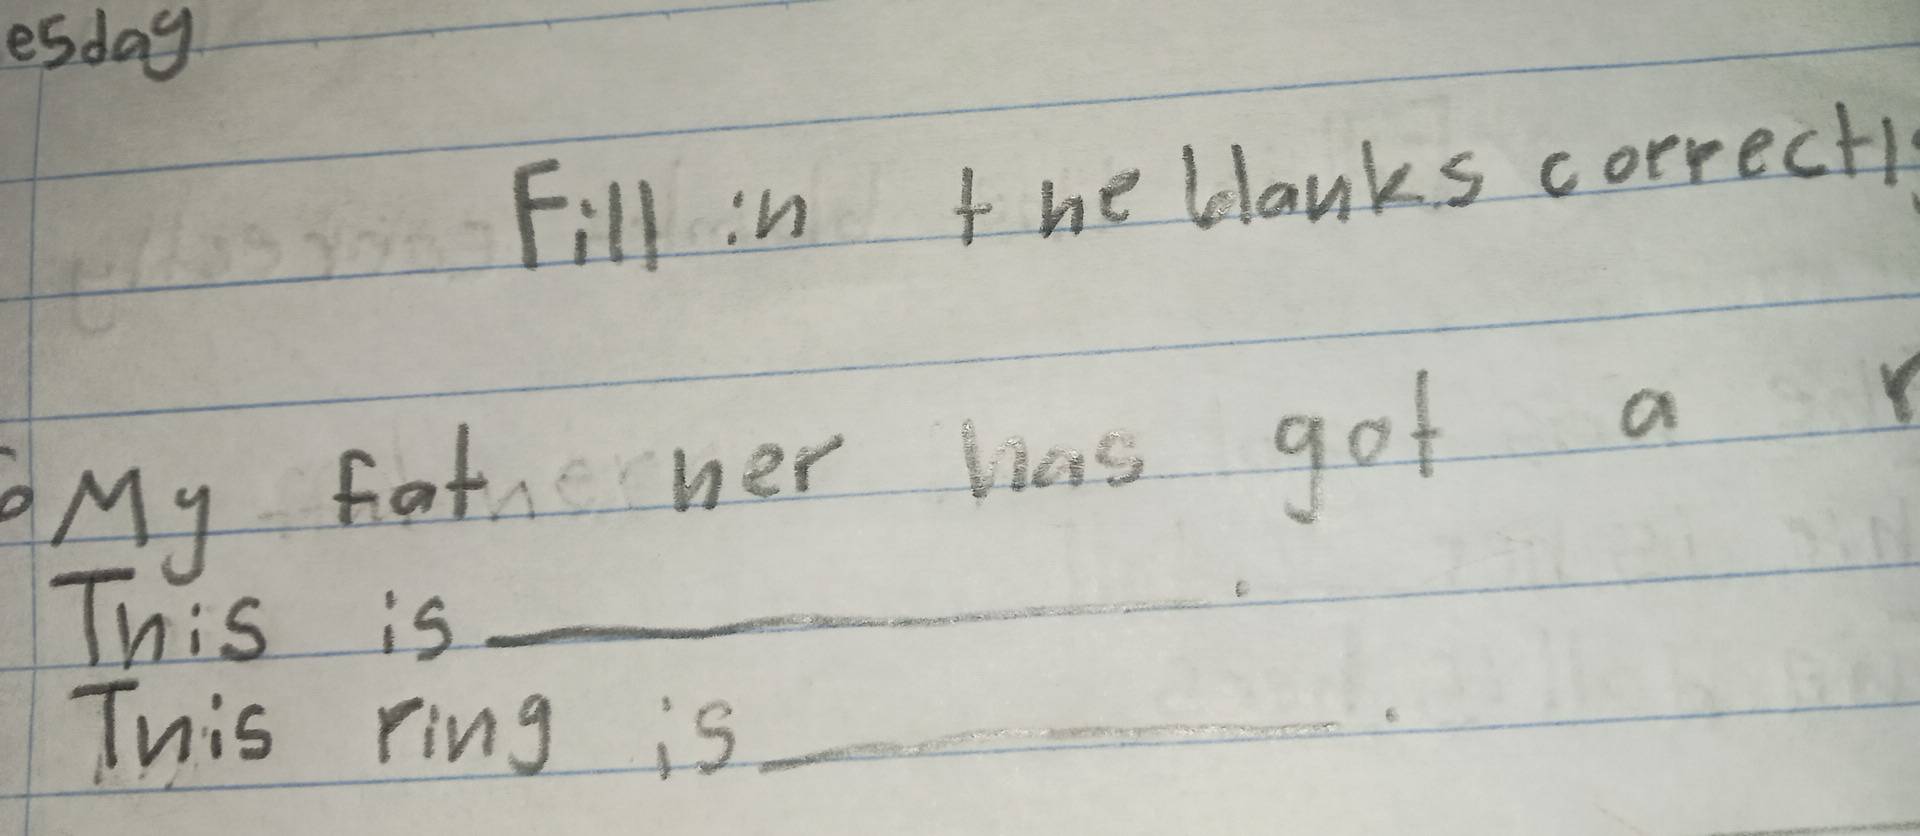 esday
Fill in the blanks correctly
My father has got a r
This is ________.
This ring is ________.